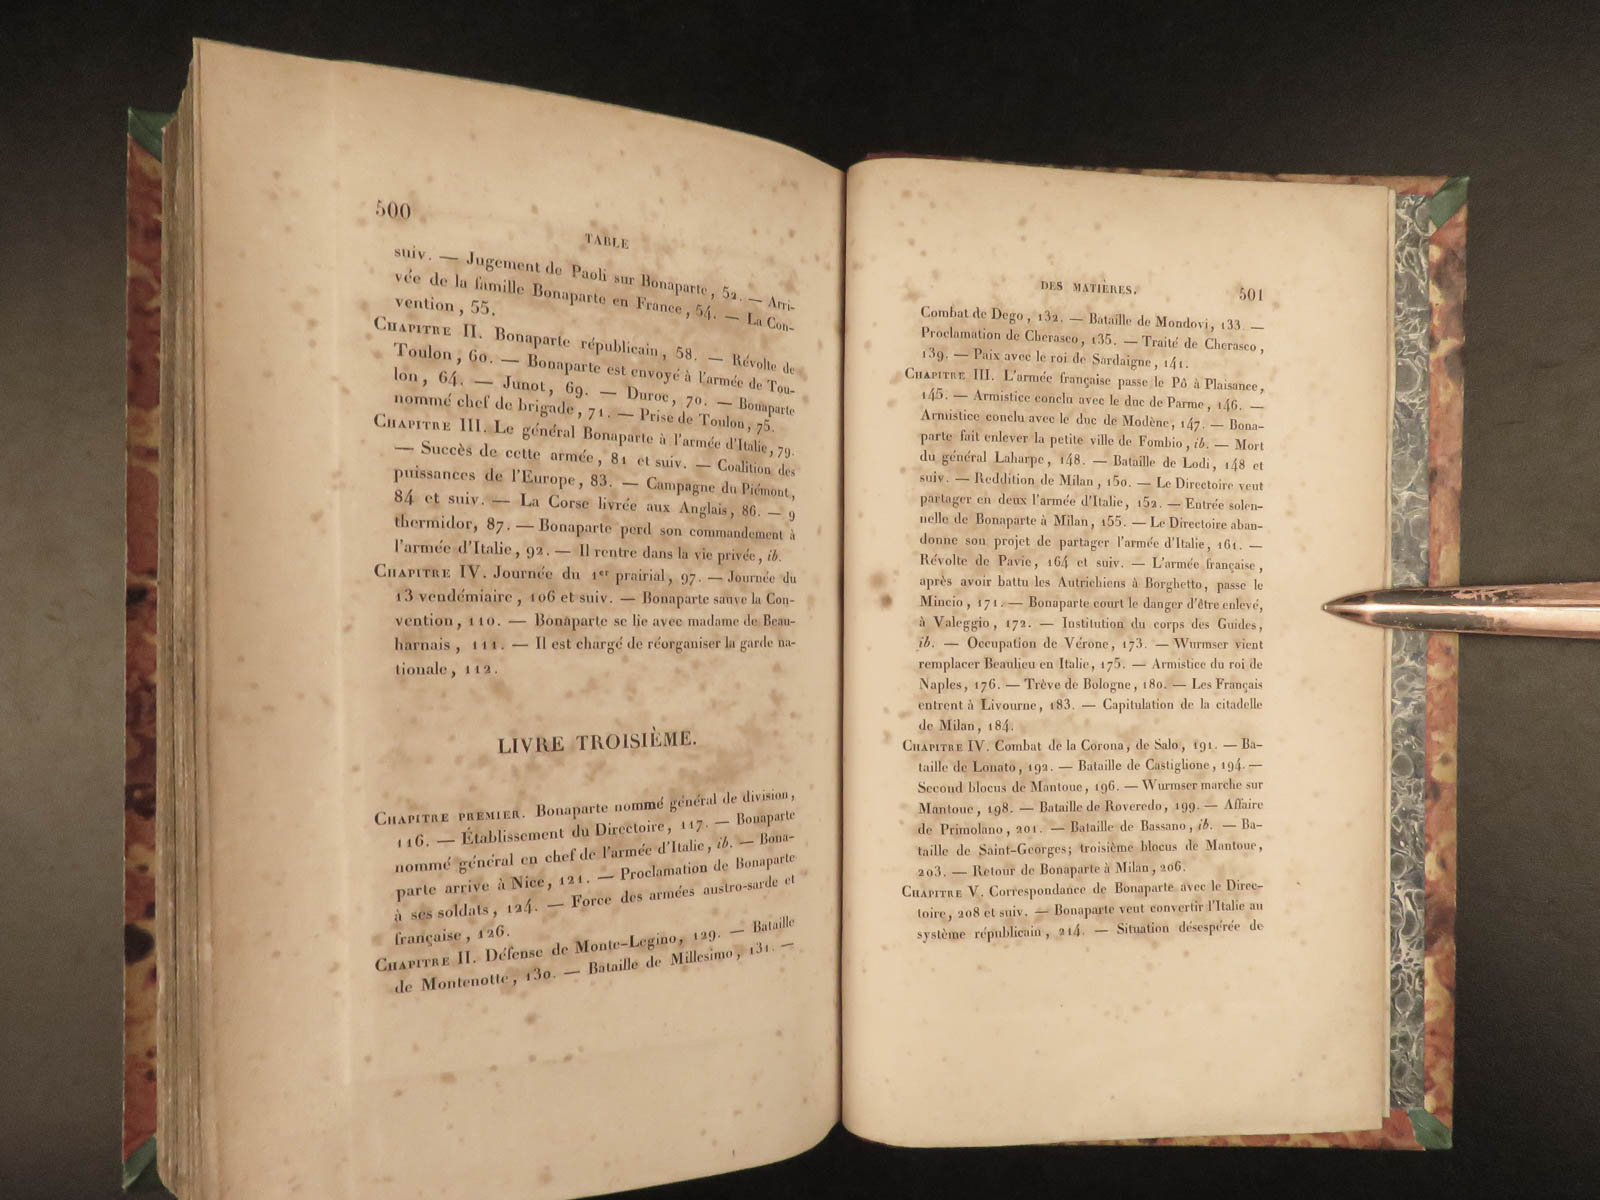 500
TABLE
suiv. — Jugement de Paoli sur Bonaparte, 52. — Arri-
vée de la famille Bonaparte en France, 54. — La Con-
vention, 55.
CHAPITRE II. Bonaparte républicain, 58. — Révolte de
Toulon, 60. — Bonaparte est envoyé à l'armée de Tou-
lon, 64. — Junot, 69. — Duroc, 70. — Bonaparte
nommé chef de brigade, 71. — Prise de Toulon, 75.
CHAPITRE III. Le général Bonaparte à l'armée d'Italie, 79.
— Succès de cette armée, 81 et suiv. — Coalition des
puissances de l'Europe, 83. — Campagne du Piémont,
84 et suiv. — La Corse livrée aux Anglais, 86. — 9
thermidor, 87. — Bonaparte perd son commandement à
l'armée d'Italie, 92. — Il rentre dans la vie privée, ib.
CHAPITRE IV. Journée du 1er prairial, 97. — Journée du
13 vendémiaire, 106 et suiv. — Bonaparte sauve la Con-
vention, 110. — Bonaparte se lie avec madame de Beau-
harnais, 111. — Il est chargé de réorganiser la garde na-
tionale, 112.
LIVRE TROISIÈME.
CHAPITRE PREMIER. Bonaparte nommé général de division,
116. — Établissement du Directoire, 117. — Bonaparte
nommé général en chef de l'armée d'Italie, ib. — Bona-
parte arrive à Nice, 121. — Proclamation de Bonaparte
à ses soldats, 124. — Force des armées austro-sarde et
française, 126.
CHAPITRE II. Défense de Monte-Legino, 129. — Bataille
de Montenotte, 130. — Bataille de Millesimo, 131. —
DES MATIÈRES. 501
Combat de Dego, 132. — Bataille de Mondovi, 133. —
Proclamation de Cherasco, 135. — Traité de Cherasco,
139. — Paix avec le roi de Sardaigne, 141.
CHAPITRE III. L'armée française passe le Pô à Plaisance,
145. — Armistice conclu avec le duc de Parme, 146. —
Armistice conclu avec le duc de Modène, 147. — Bona-
parte fait enlever la petite ville de Fombio, ib. — Mort
du général Laharpe, 148. — Bataille de Lodi, 148 et
suiv. — Reddition de Milan, 150. — Le Directoire veut
partager en deux l'armée d'Italie, 152. — Entrée solen-
nelle de Bonaparte à Milan, 155. — Le Directoire aban-
donne son projet de partager l'armée d'Italie, 161. —
Révolte de Pavie, 164 et suiv. — L'armée française,
après avoir battu les Autrichiens à Borghetto, passe le
Mincio, 171. — Bonaparte court le danger d'être enlevé,
à Valeggio, 172. — Institution du corps des Guides,
ib. — Occupation de Vérone, 173. — Wurmser vient
remplacer Beaulieu en Italie, 175. — Armistice du roi de
Naples, 176. — Trève de Bologne, 180. — Les Français
entrent à Livourne, 183. — Capitulation de la citadelle
de Milan, 184.
CHAPITRE IV. Combat de la Corona, de Salo, 191. — Ba-
taille de Lonato, 192. — Bataille de Castiglione, 194. —
Second blocus de Mantoue, 196. — Wurmser marche sur
Mantoue, 198. — Bataille de Roveredo, 199. — Affaire
de Primolano, 201. — Bataille de Bassano, ib. — Ba-
taille de Saint-Georges; troisième blocus de Mantoue,
203. — Retour de Bonaparte à Milan, 206.
CHAPITRE V. Correspondance de Bonaparte avec le Direc-
toire, 208 et suiv. — Bonaparte veut convertir l'Italie au
système républicain, 214. — Situation désespérée de